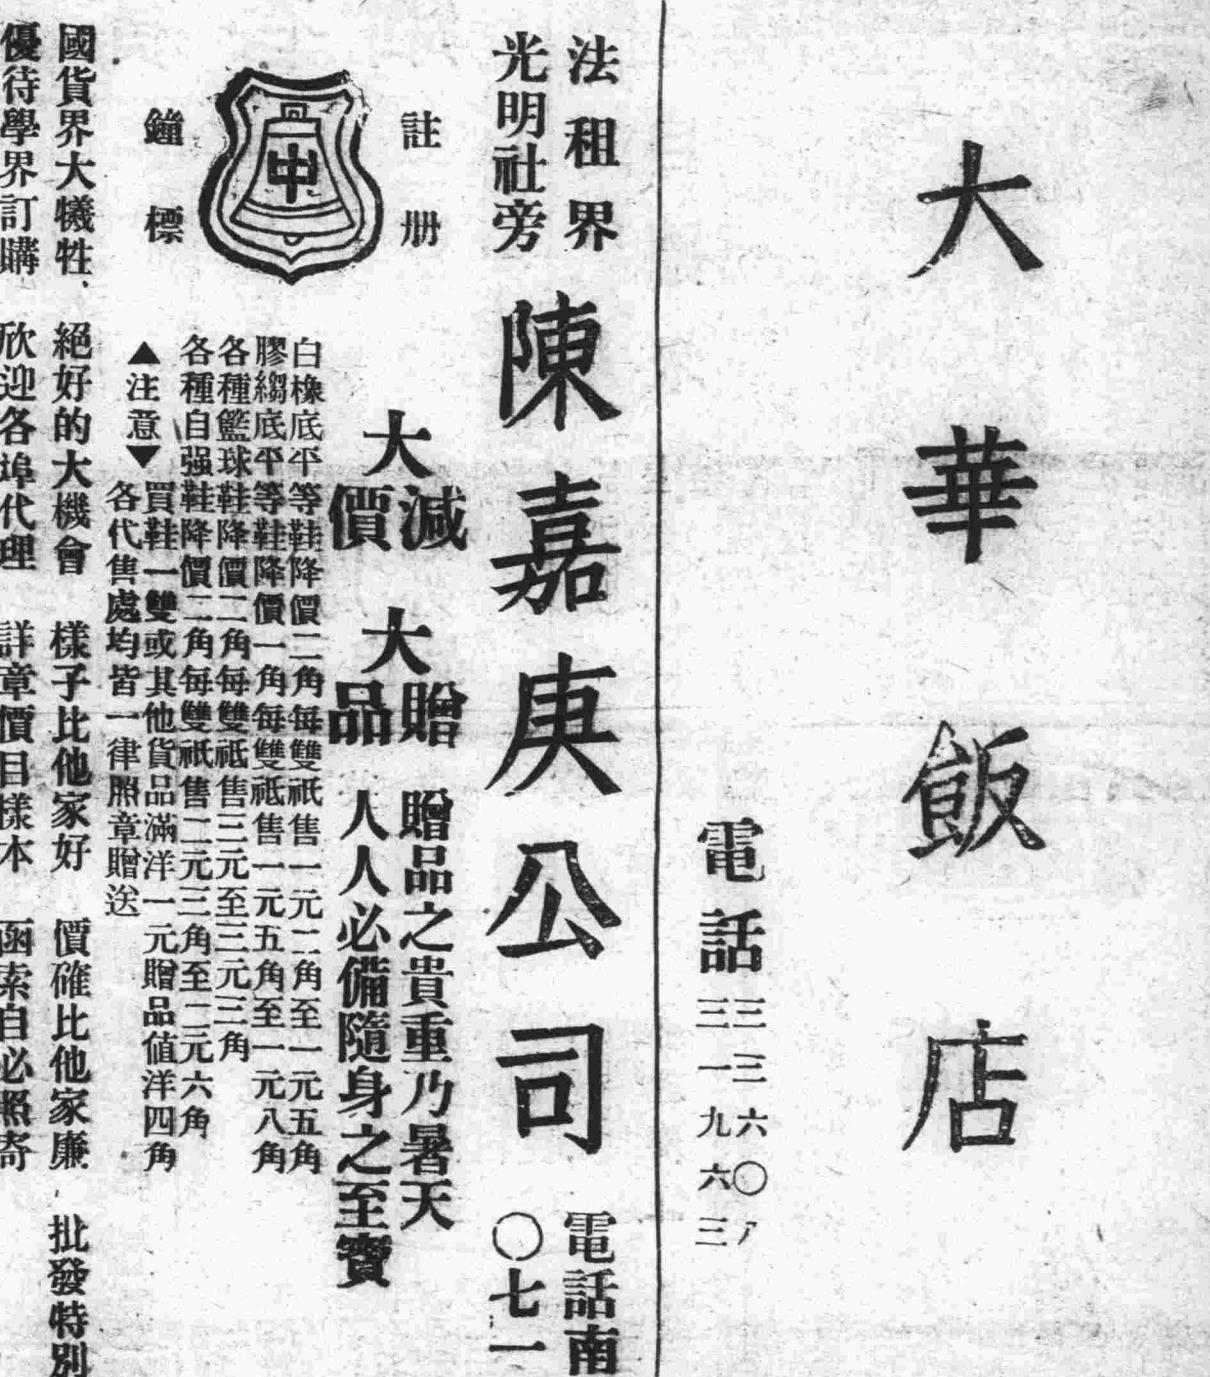 大華飯店
電話
三三六〇
三一九六三
法租界
光明社旁
陳嘉庚公司
電話南
〇七一
註册
鐘標
中
大減價
大贈品
贈品之貴重乃暑天
人人必備隨身之至寶
白橡底平等鞋降價二角每雙祇售一元二角至一元五角
膠縐底平等鞋降價一角每雙祇售一元五角至一元八角
各種籃球鞋降價二角每雙祇售三元至三元三角
各種自强鞋降價二角每雙祇售二元三角至二元六角
▲注意▼
買鞋一雙或其他貨品滿洋一元贈品值洋四角
各代售處均皆一律照章贈送
國貨界大犧牲、絕好的大機會 樣子比他家好 價確比他家廉、批發特別
優待學界訂購 欣迎各埠代理 詳章價目樣本 函索自必照寄